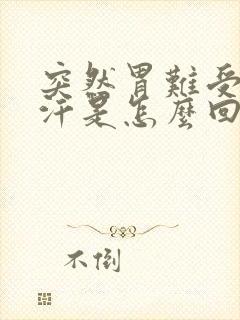 突然胃難受
汗是怎麼回
不倒